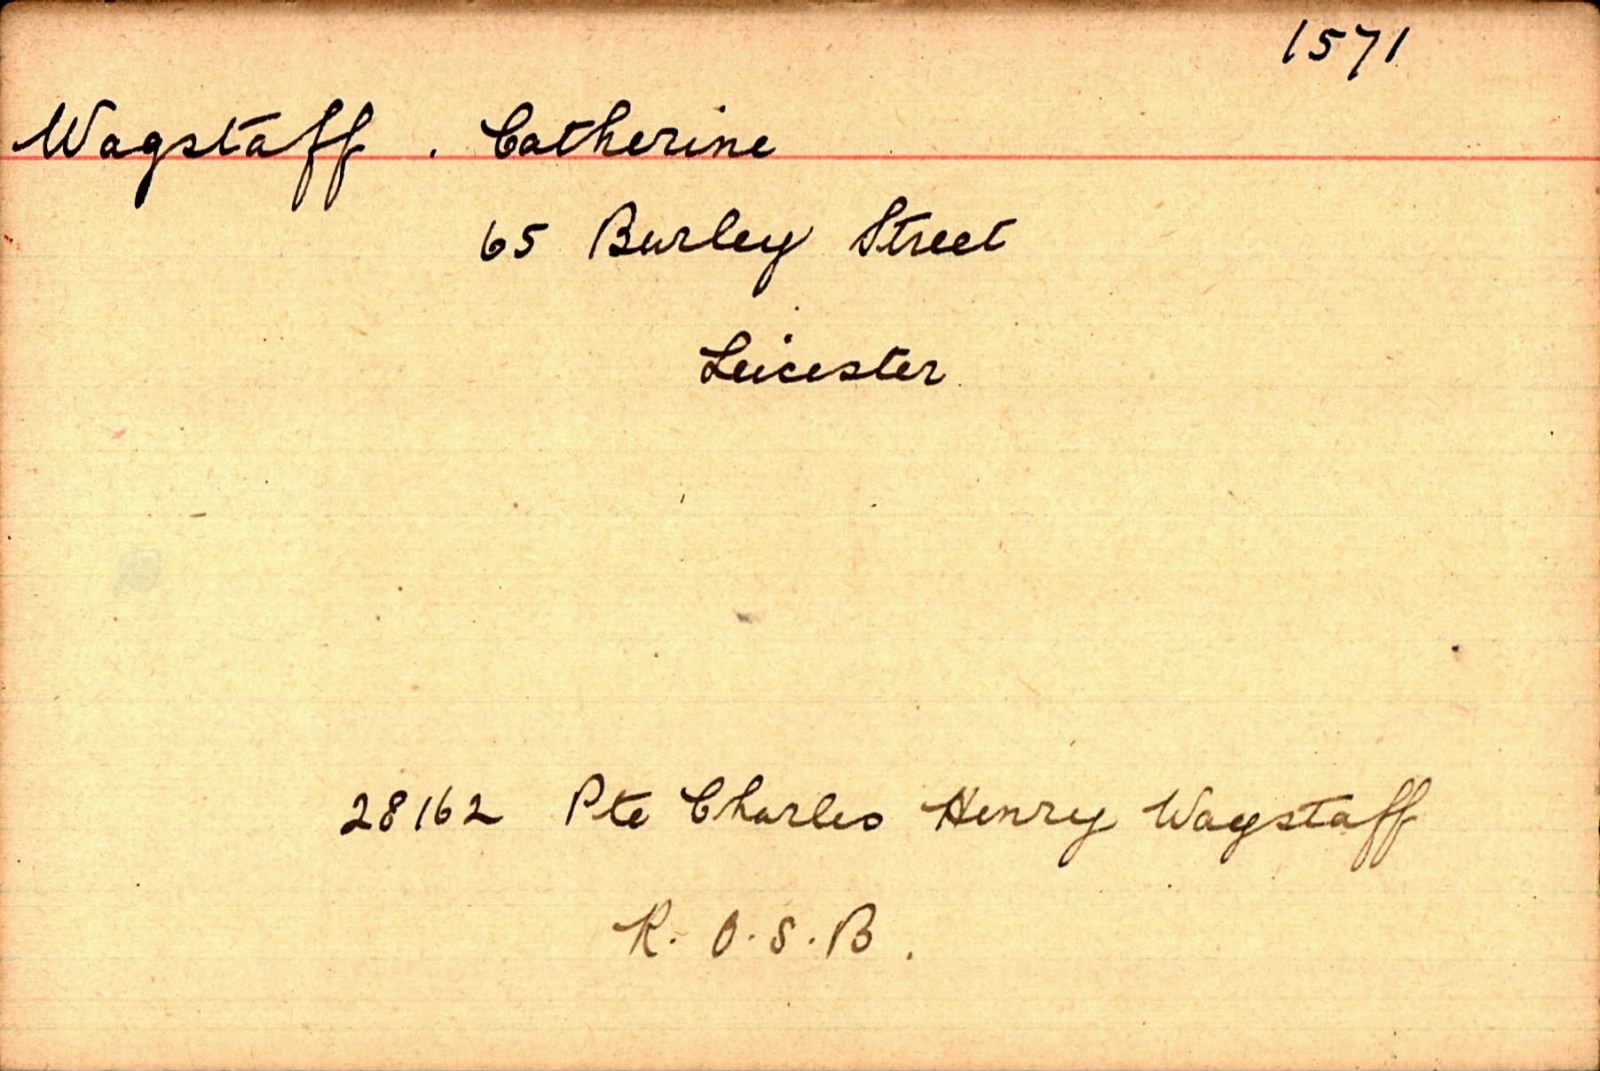 1571
Wagstaff. Catherine
65 Burley Street
Leicester
28162 Pte Charles Henry Wagstaff
K. O. S. B.